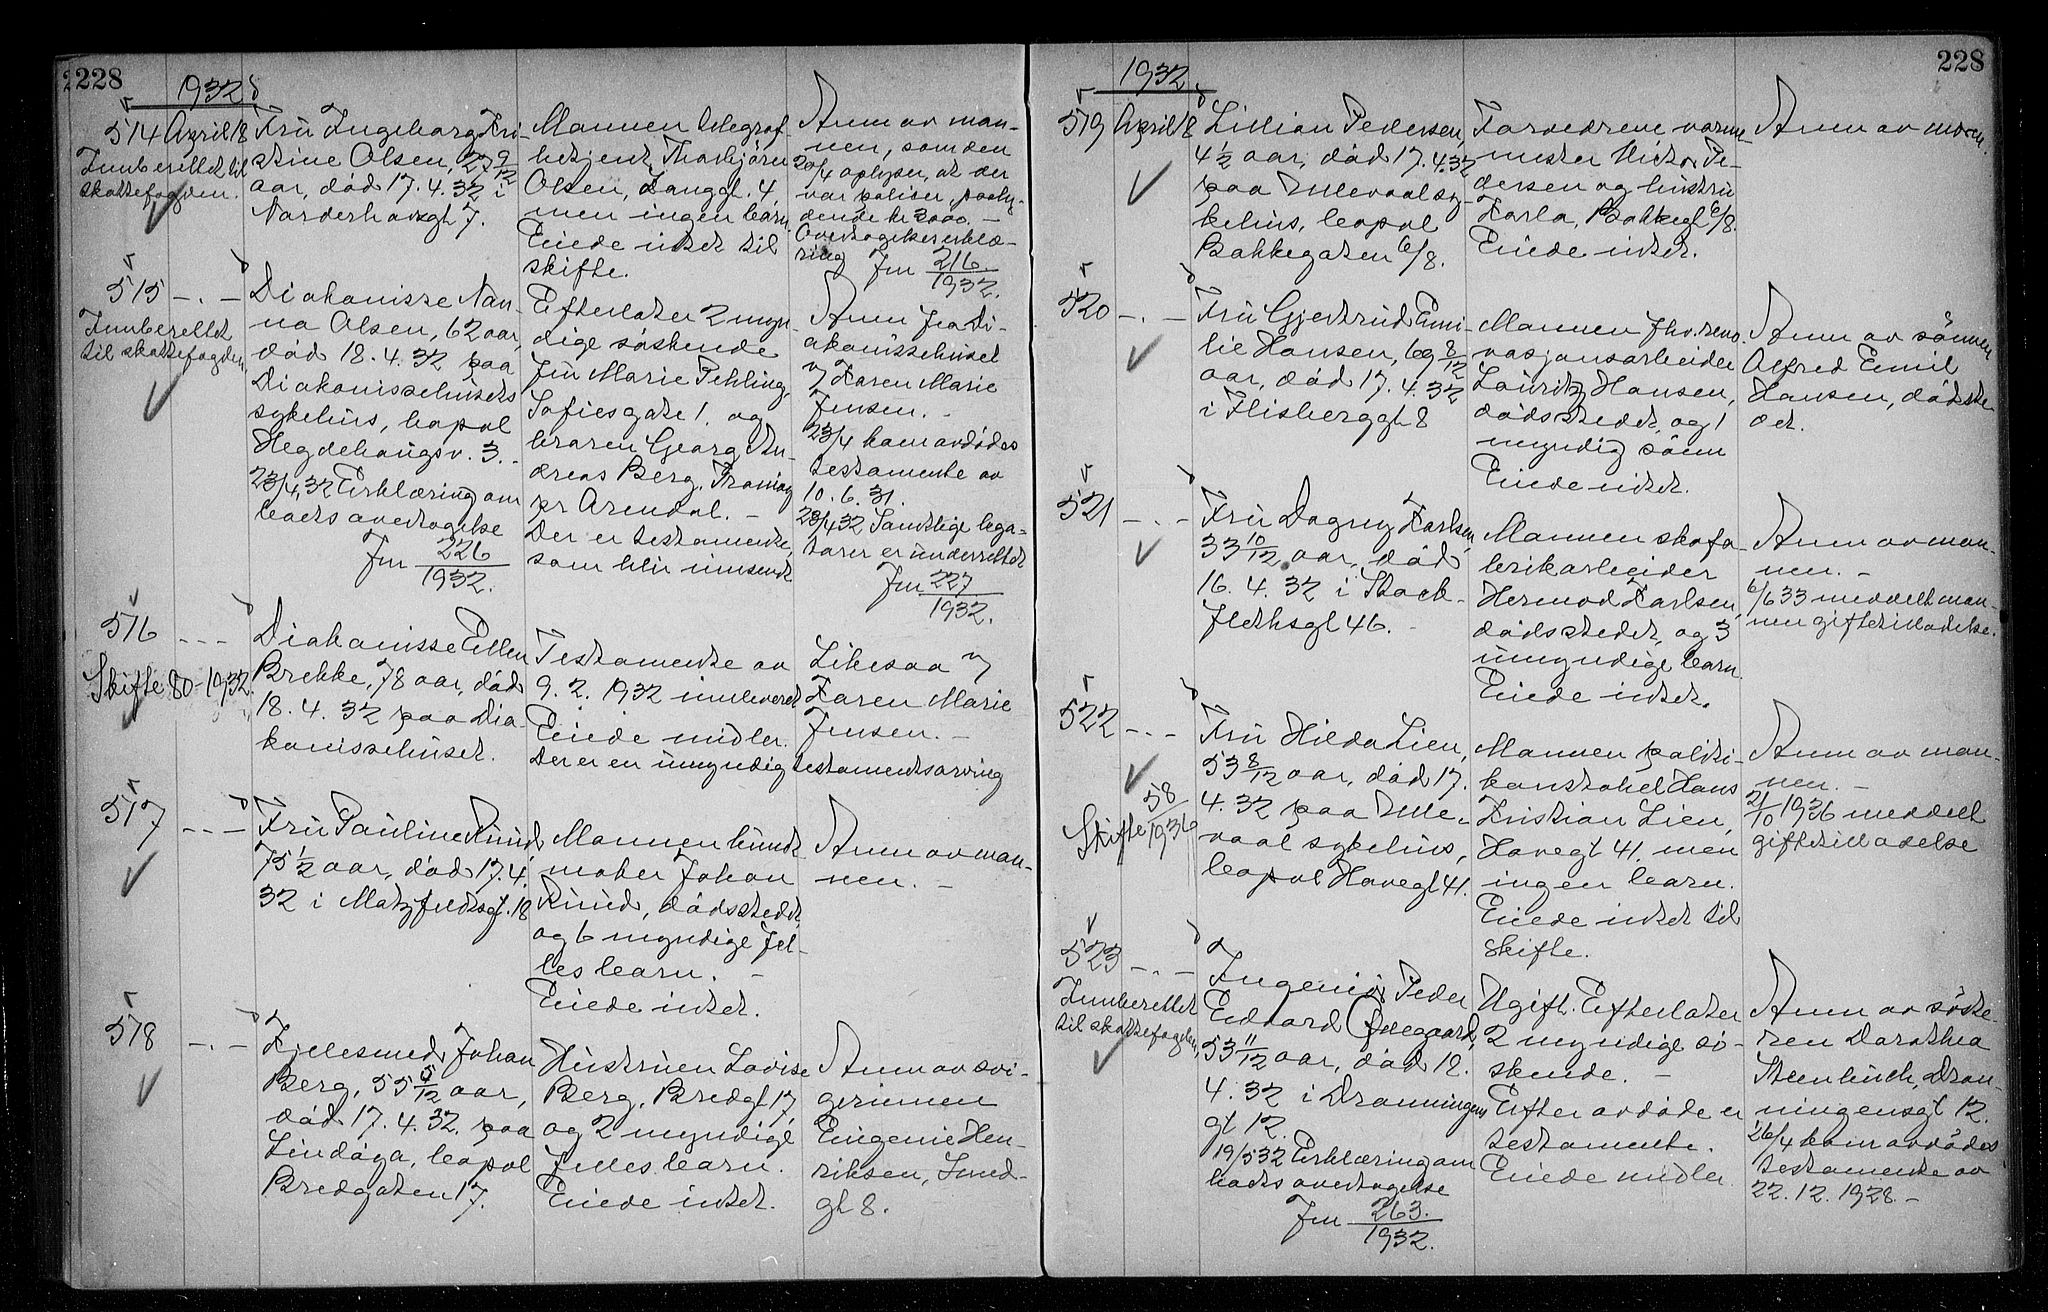 228
1932
514 April 18
Innberettet til
skattefogden.
Fru Ingeborg Kri-
stine Olsen, 27 9/12
aar, död 17.4.32 i
Norderhovsgt 7.
Mannen telegraf-
betjent Thorbjörn
Olsen, Langgt. 4,
men ingen barn.
Eiede intet til
skifte.
Anm av man-
nen, som den
20/4 oplyser, at der
var poliser, paaly-
dende kr 3000. -
Overtagelseserklæ-
ring Jnr 216/1932.
515 - . -
Innberettet
til skattefogden
Diakonisse Nan-
na Olsen, 62 aar,
död 18.4.32 paa
Diakonissehusets
sykehus, bopel
Hegdehaugsv. 3. -
23/4 32 Erklæring om
boets overtagelse
Jnr 226/1932.
Efterlater 2 myn-
dige söskende
fru Marie Fehling,
Sofiesgate 1. og
broren Georg An-
dreas Berg, Tromöy
pr Arendal. -
Der er testamente,
som blir innsendt
Anm fra Di-
akonissehuset
v/ Karen Marie
Jensen. -
23/4 kom avdödes
testamente av
10.6.31.
28/4 32 Samtlige lega-
tarer er underrettet
Jnr 227/1932.
516 - . -
Skifte 80-1932.
Diakonisse Ellen
Brekke, 78 aar, död
18.4.32 paa Dia-
konissehuset.
Testamente av
9.2.1932 innleveret
Eiede midler.
Der er en umyndig testamentsarving
Likesaa v/
Karen Marie
Jensen. -
517 - . -
Fru Pauline Ruud,
75 1/2 aar, död 17.4.
32 i Matzfeldtsgt. 18
Mannen bunt-
maker Johan
Ruud, dödsstedet,
og 6 myndige fel-
les barn. -
Eiede intet.
Anm av man-
nen. -
518 - . -
Kjelesmed Johan
Berg, 55 5/12 aar,
död 17.4.32. paa
Lindöya, bopel
Bredgaten 17.
Hustruen Lovise
Berg, Bredgt 17,
og 2 myndige
felles barn.
Eiede intet.
Anm av svi-
gerinnen
Eugenie Hen-
riksen, Smed-
gt 8.
228
1932
519 April 18
Lillian Pedersen,
4 1/2 aar, död 17.4.32
paa Ullevaal sy-
kehus, bopel
Bakkegaten 6/8.
Forældrene varme-
mester Victor Pe-
dersen og hustru
Karla, Bakkegt 6/8.
Eiede intet.
Anm av moren.
520 - . -
Fru Gjertrud Emi-
lie Hansen, 69 8/12
aar, död 17.4.32
i Flisberggt 8
Mannen fhv. reno-
vasjonsarbeider
Lauritz Hansen,
dödsstedet, og 1
myndig sönn
Eiede intet.
Anm av sönnen
Alfred Emil
Hansen, dödste-
det.
521 - . -
Fru Dagny Karlsen,
33 10/12 aar, död
16.4.32 i Stock-
flethsgt 46. -
Mannen skofa-
brikarbeider
Hermod Karlsen,
dödsstedet, og 3
umyndige barn.
Eiede intet.
Anm av man-
nen. -
6/6 33 meddelt man-
nen giftetilladelse.
522 - . -
Skifte 58/1936
Fru Hilda Lien,
53 8/12 aar, död 17.
4.32 paa Ulle-
vaal sykehus,
bopel Havegt 41.
Mannen politi-
konstabel Hans
Kristian Lien,
Havegt 41, men
ingen barn.
Eiede intet til
skifte.
Anm av man-
nen. -
2/10 1936 meddelt
giftetilladelse
523 - . -
Innberettet
til skattefogden,
Ingeniör Peder
Edvard Ödegaard,
53 11/12 aar, död 18.
4.32 i Dronningens
gt 12.
19/5 32 Erklæring om
boets overtagelse
Jnr 263./1932.
Ugift. Efterlater
2 myndige sö-
skende. -
Efter avdöde er
testamente.
Eiede midler
Anm av söste-
ren Dorothea
Steenbuch, Dron-
ningensgt 12.
26/4 kom avdödes
testamente av
22.12.1928 -